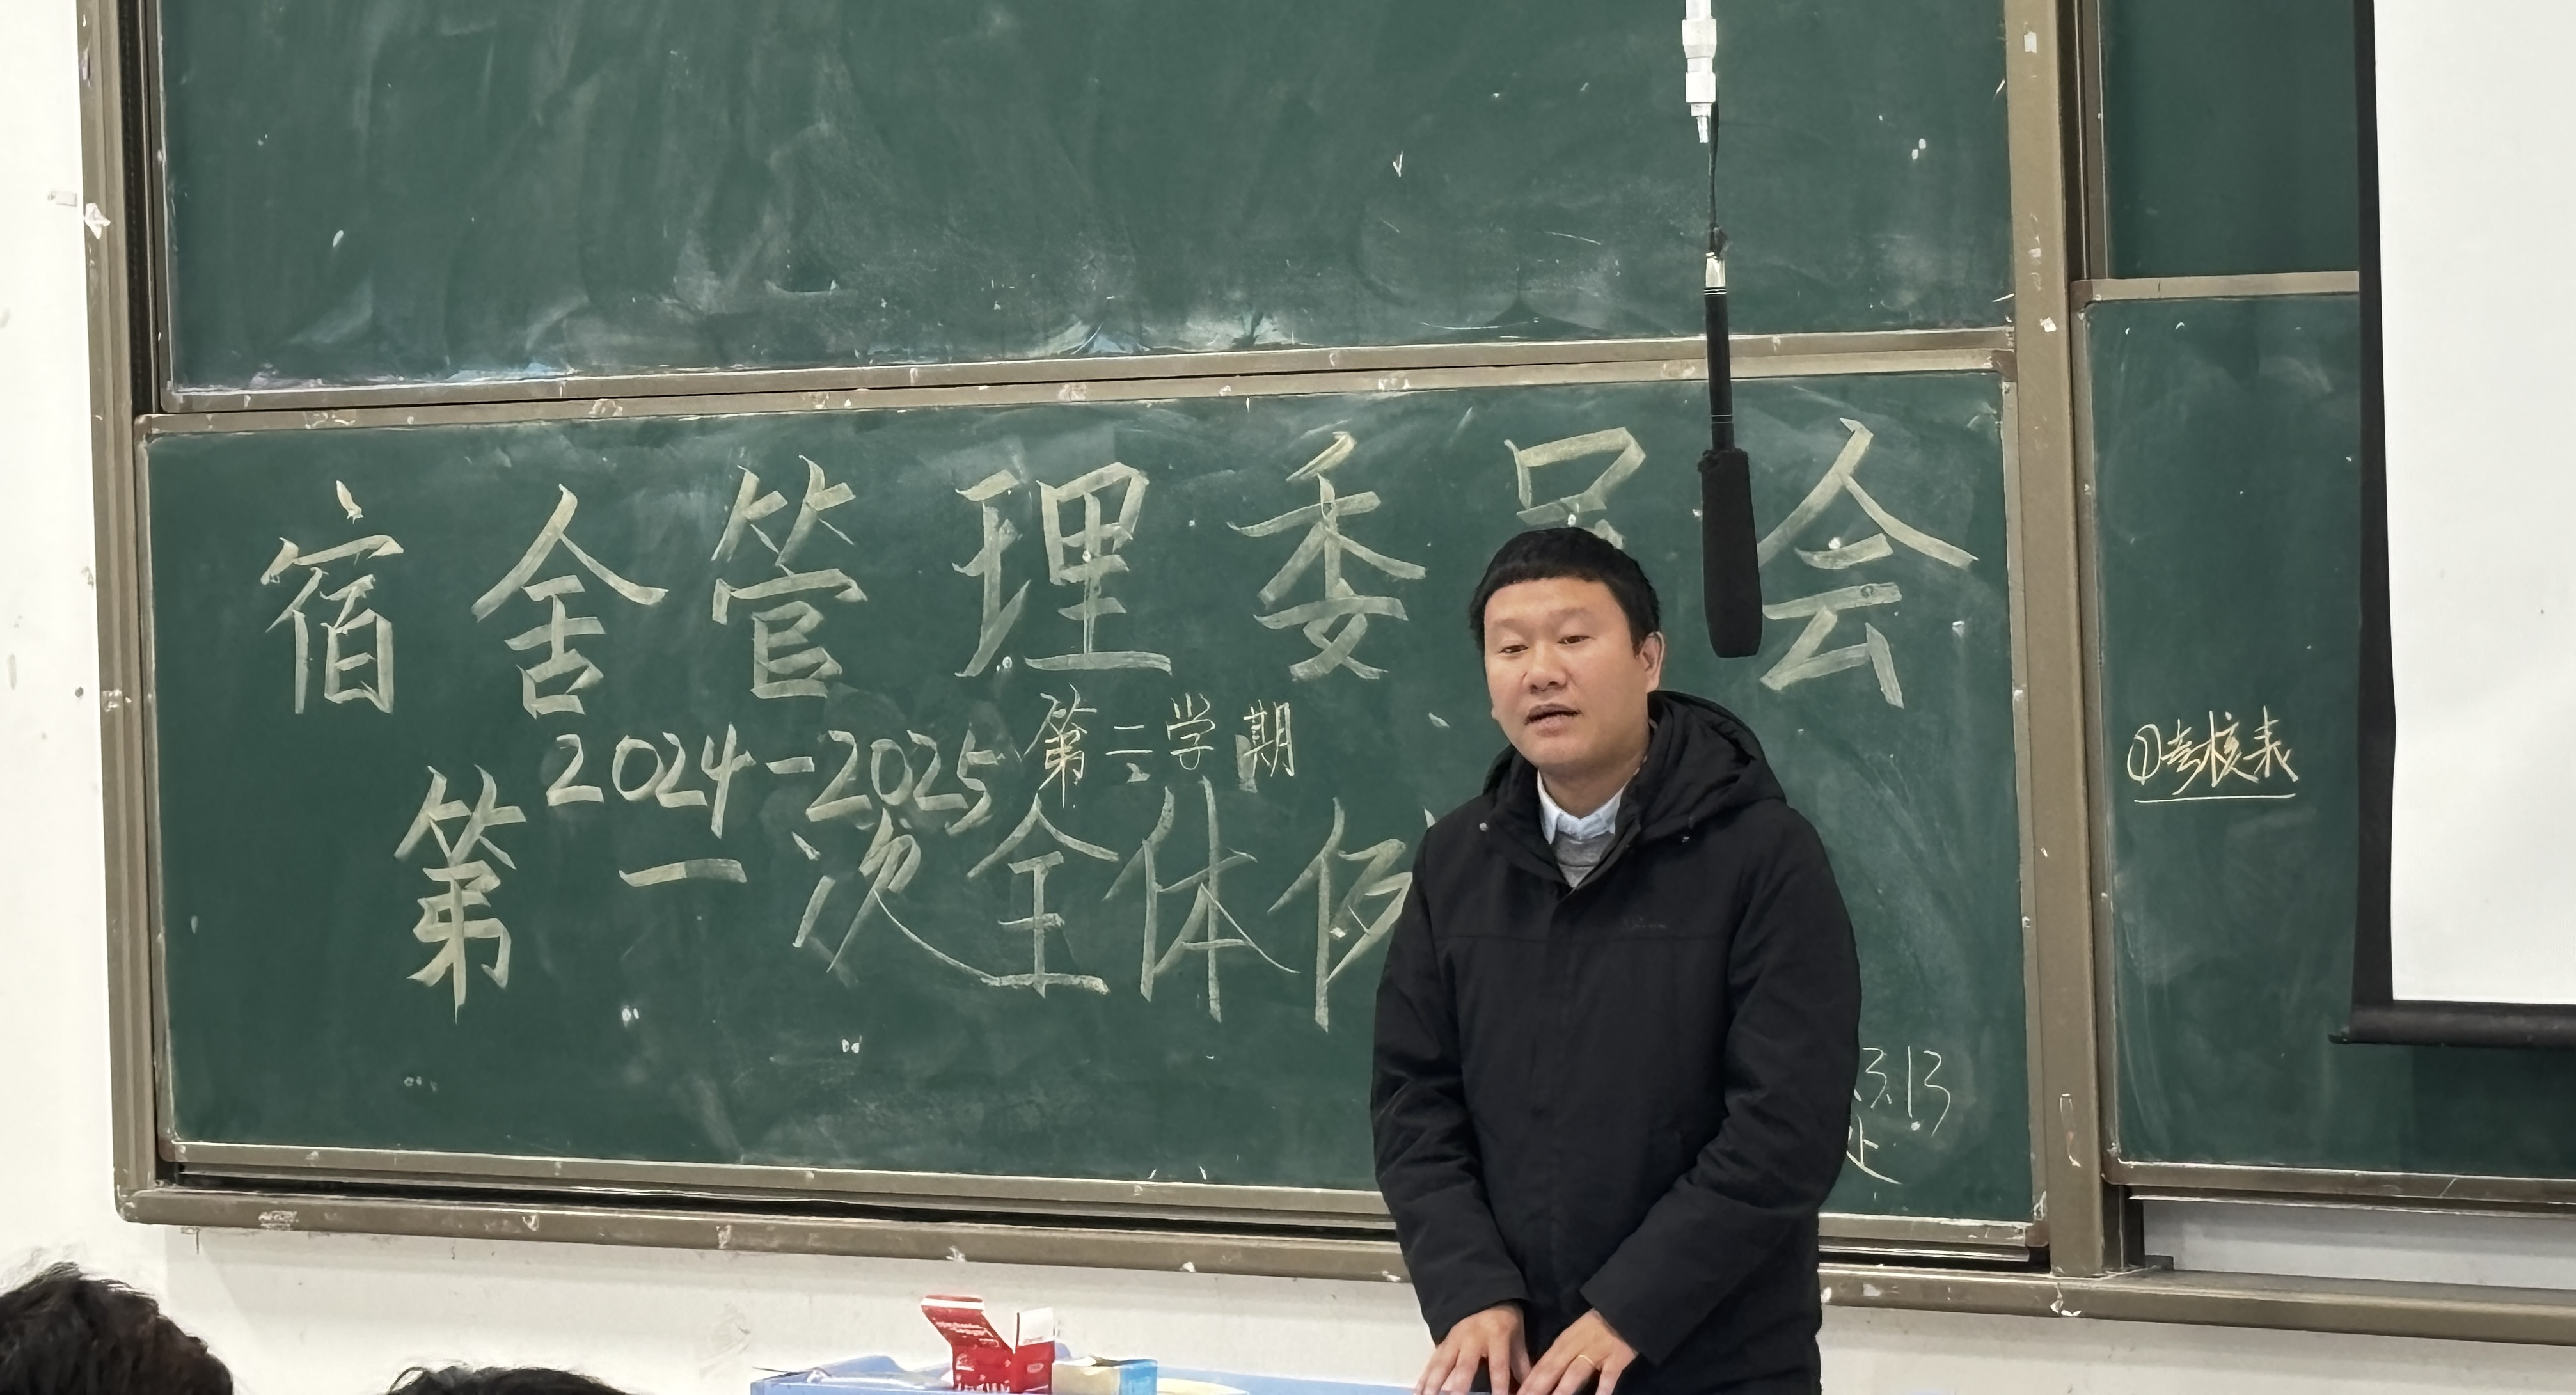 宿舍管理委员会
2024-2025第二学期
第一次全体例
3.13
①考核表